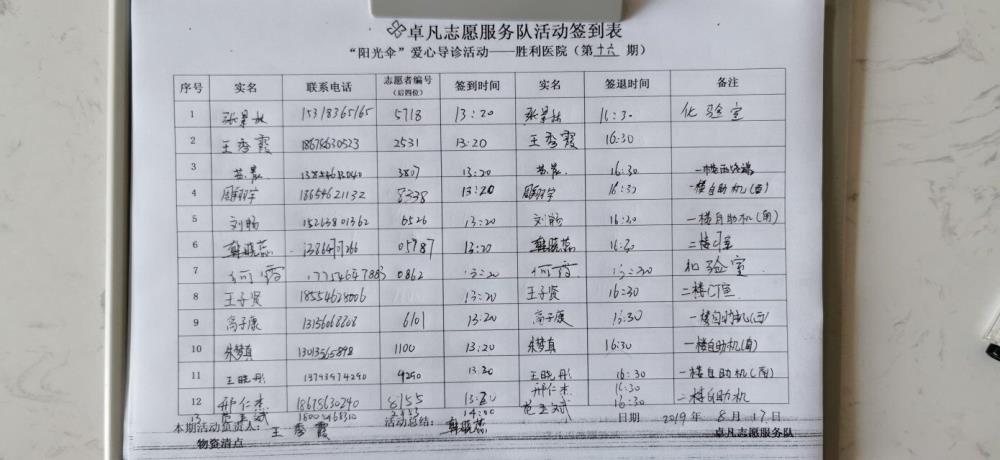 卓凡志愿服务队活动签到表
“阳光伞”爱心导诊活动——胜利医院（第十六期）
序号 实名 联系电话 志愿者编号（后四位） 签到时间 实名 签退时间 备注
1 15318365165 5718 13:20 16:30 化验室
2 王秀霞 18678630523 2531 13:20 王秀霞 16:30
3 3807 13:20 16:30
4 18654621132 8338 13:20 16:30 一楼自助机(西)
5 刘畅 15263801362 6526 13:20 刘畅 16:30 一楼自助机(南)
6 韩晓蕊 13:20 韩晓蕊 16:30 二楼CT室
7 何霞 17754647883 0862 13:20 何霞 化验室
8 王子贤 18554628006 13:20 王子贤 16:30 二楼CT室
9 高子康 13156068808 6101 13:20 高子康 一楼自助机(西)
10 朱梦真 13013565898 1100 13:20 朱梦真 16:30 一楼自助机(南)
11 王晓彤 13793974290 4290 13:20 王晓彤 16:30 一楼自助机(南)
12 邢仁杰 18675630240 8155 13:20 邢仁杰 16:30 二楼自助机
13 14:00 16:30
本期活动负责人： 王秀霞 活动总结： 韩晓蕊 日期 2019年8月17日
物资清点 卓凡志愿服务队